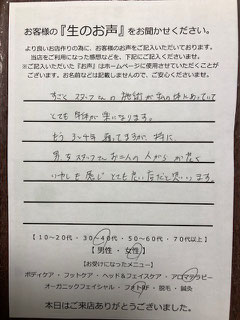 お客様の『生のお声』をお聞かせください。
より良いお店作りの為に、お客様のお声をご記入いただいております。
当店をご利用になった感想などを、下記にご記入くださいませ。
※ご記入いただいた『お声』はホームページに使用させていただくことが
ございます。お名前などは記載しませんので、ご安心くださいませ。
すごく スタッフさんの 施術が 私の体にあっていて
とても 身体が 楽になります。
もう 3〜4年 通ってますが、特に
男性スタッフさん お二人の人がらか 深く
いやしも 感じ とても良い店だと思います
【10〜20代・30〜40代・50〜60代・70代以上】
【男性・女性】
【お受けになったメニュー】
ボディケア・フットケア・ヘッド＆フェイスケア・アロマセラピー
オーガニックフェイシャル・フォトRF・脱毛・鍼灸
本日はご来店ありがとうございました。